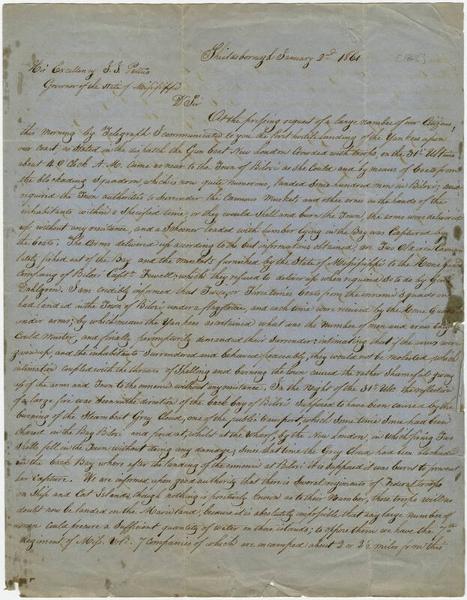 Shieldsborough January 2nd 1861
His Excellency J. J. Pettus
Governor of the State of Mississippi
D Sir
At the pressing request of a large number of our Citizens,
this morning by Telegraph I communicated to you the hostile landing of the Yankees upon
our coast, as stated in the dispatch the Gun boat New London loaded with troops, on the 31st Ultimo
about 4 O Clock A. M. came as near to the Town of Biloxi as she could and by means of Boats from
the blockading Squadron, which is now quite numerous, landed some hundred men in Biloxi; and
required the Town authorities to surrender the Cannon Musket and other arms in the hands of the
inhabitants within a specified time; or they would Shell and burn the Town; the arms were delivered
up without any resistance, and a Schooner loaded with lumber lying in the Bay was Captured by
the boats. The Arms delivered up according to the best information obtained, are Two Old Iron Cannon
lately fished out of the Bay and the Muskets furnished by the State of Mississippi to the Home Guard
Company of Biloxi Captn Fewell; which they refused to deliver up when required so to do by Genl
Dahlgren. I am credibly informed that Two or Three times boats from the enemies Squadron
had landed in the Town of Biloxi under a flag of truce, and each time were received by the Home Guards
under arms; by which means the Yankees ascertained what was the number of men and arms they
Could Muster, and finally peremptorily demanded their Surrender; intimating that if the arms were
given up, and the inhabitants Surrendered and behaved peaceably they would not be molested, which
intimation coupled with the threats of Shelling and burning the town caused the rather Shameful giving
up of the arms and Town to the enemies without any resistance. In the Night of the 31st Ulto the reflection
of a large fire was seen in the direction of the Back Bay of Biloxi Supposed to have been caused by the
burning of the Steamboat Grey Cloud, one of the public transports which some time since had been
chased in the Bay Biloxi and fired at, whilst at the Wharf, by the New London, in which firing Two
Shells fell in the Town without doing any damage; Since that time the Grey Cloud had been blockaded
in the back Bay where after the landing of the enemies at Biloxi it is supposed it was burnt to prevent
her Capture. We are informed upon good authority that there is Several regiments of Federal troops
on Ship and Cat Islands, though nothing is positively known as to their Number, these troops will no
doubt now be landed on the Mainland; because it is absolutely impossible that any large number of
men could procure a Sufficient quantity of water on these islands; to oppose them we have the 7th
Regiment of Miss. Vol. 7 Companies of which are encamped about 2 or 2½ miles from this